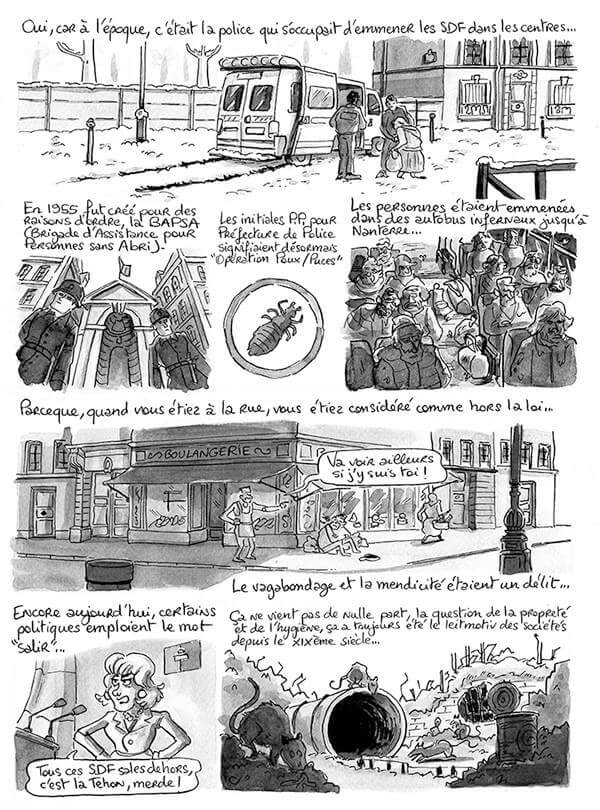 Oui, car à l'époque, c'était la police qui s'occupait d'emmener les SDF dans les centres...
En 1955, fut créé pour des
raisons d'ordre, la BAPSA
(Brigade d'Assistance pour
Personnes sans Abri).
Les initiales P.P. pour
Préfecture de Police
signifiaient désormais
"Opération Poux/Puces"
Les personnes étaient emmenées
dans des autobus infernaux jusqu'à
Nanterre...
Parceque, quand vous étiez à la rue, vous étiez considéré comme hors la loi...
BOULANGERIE
Va voir ailleurs
si j'y suis toi !
Le vagabondage et la mendicité étaient un délit...
Encore aujourd'hui, certains
politiques emploient le mot
"salir"...
Tous ces SDF sales dehors,
c'est la Téhon, merde !
Ça ne vient pas de nulle part, la question de la propreté
et de l'hygiène, ça a toujours été le leitmotiv des sociétés
depuis le XIXème siècle...